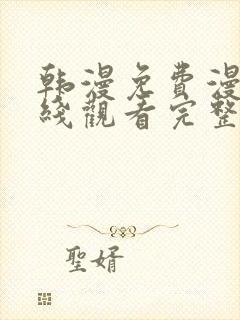 韩漫免费漫
线觀看完整
聖婿